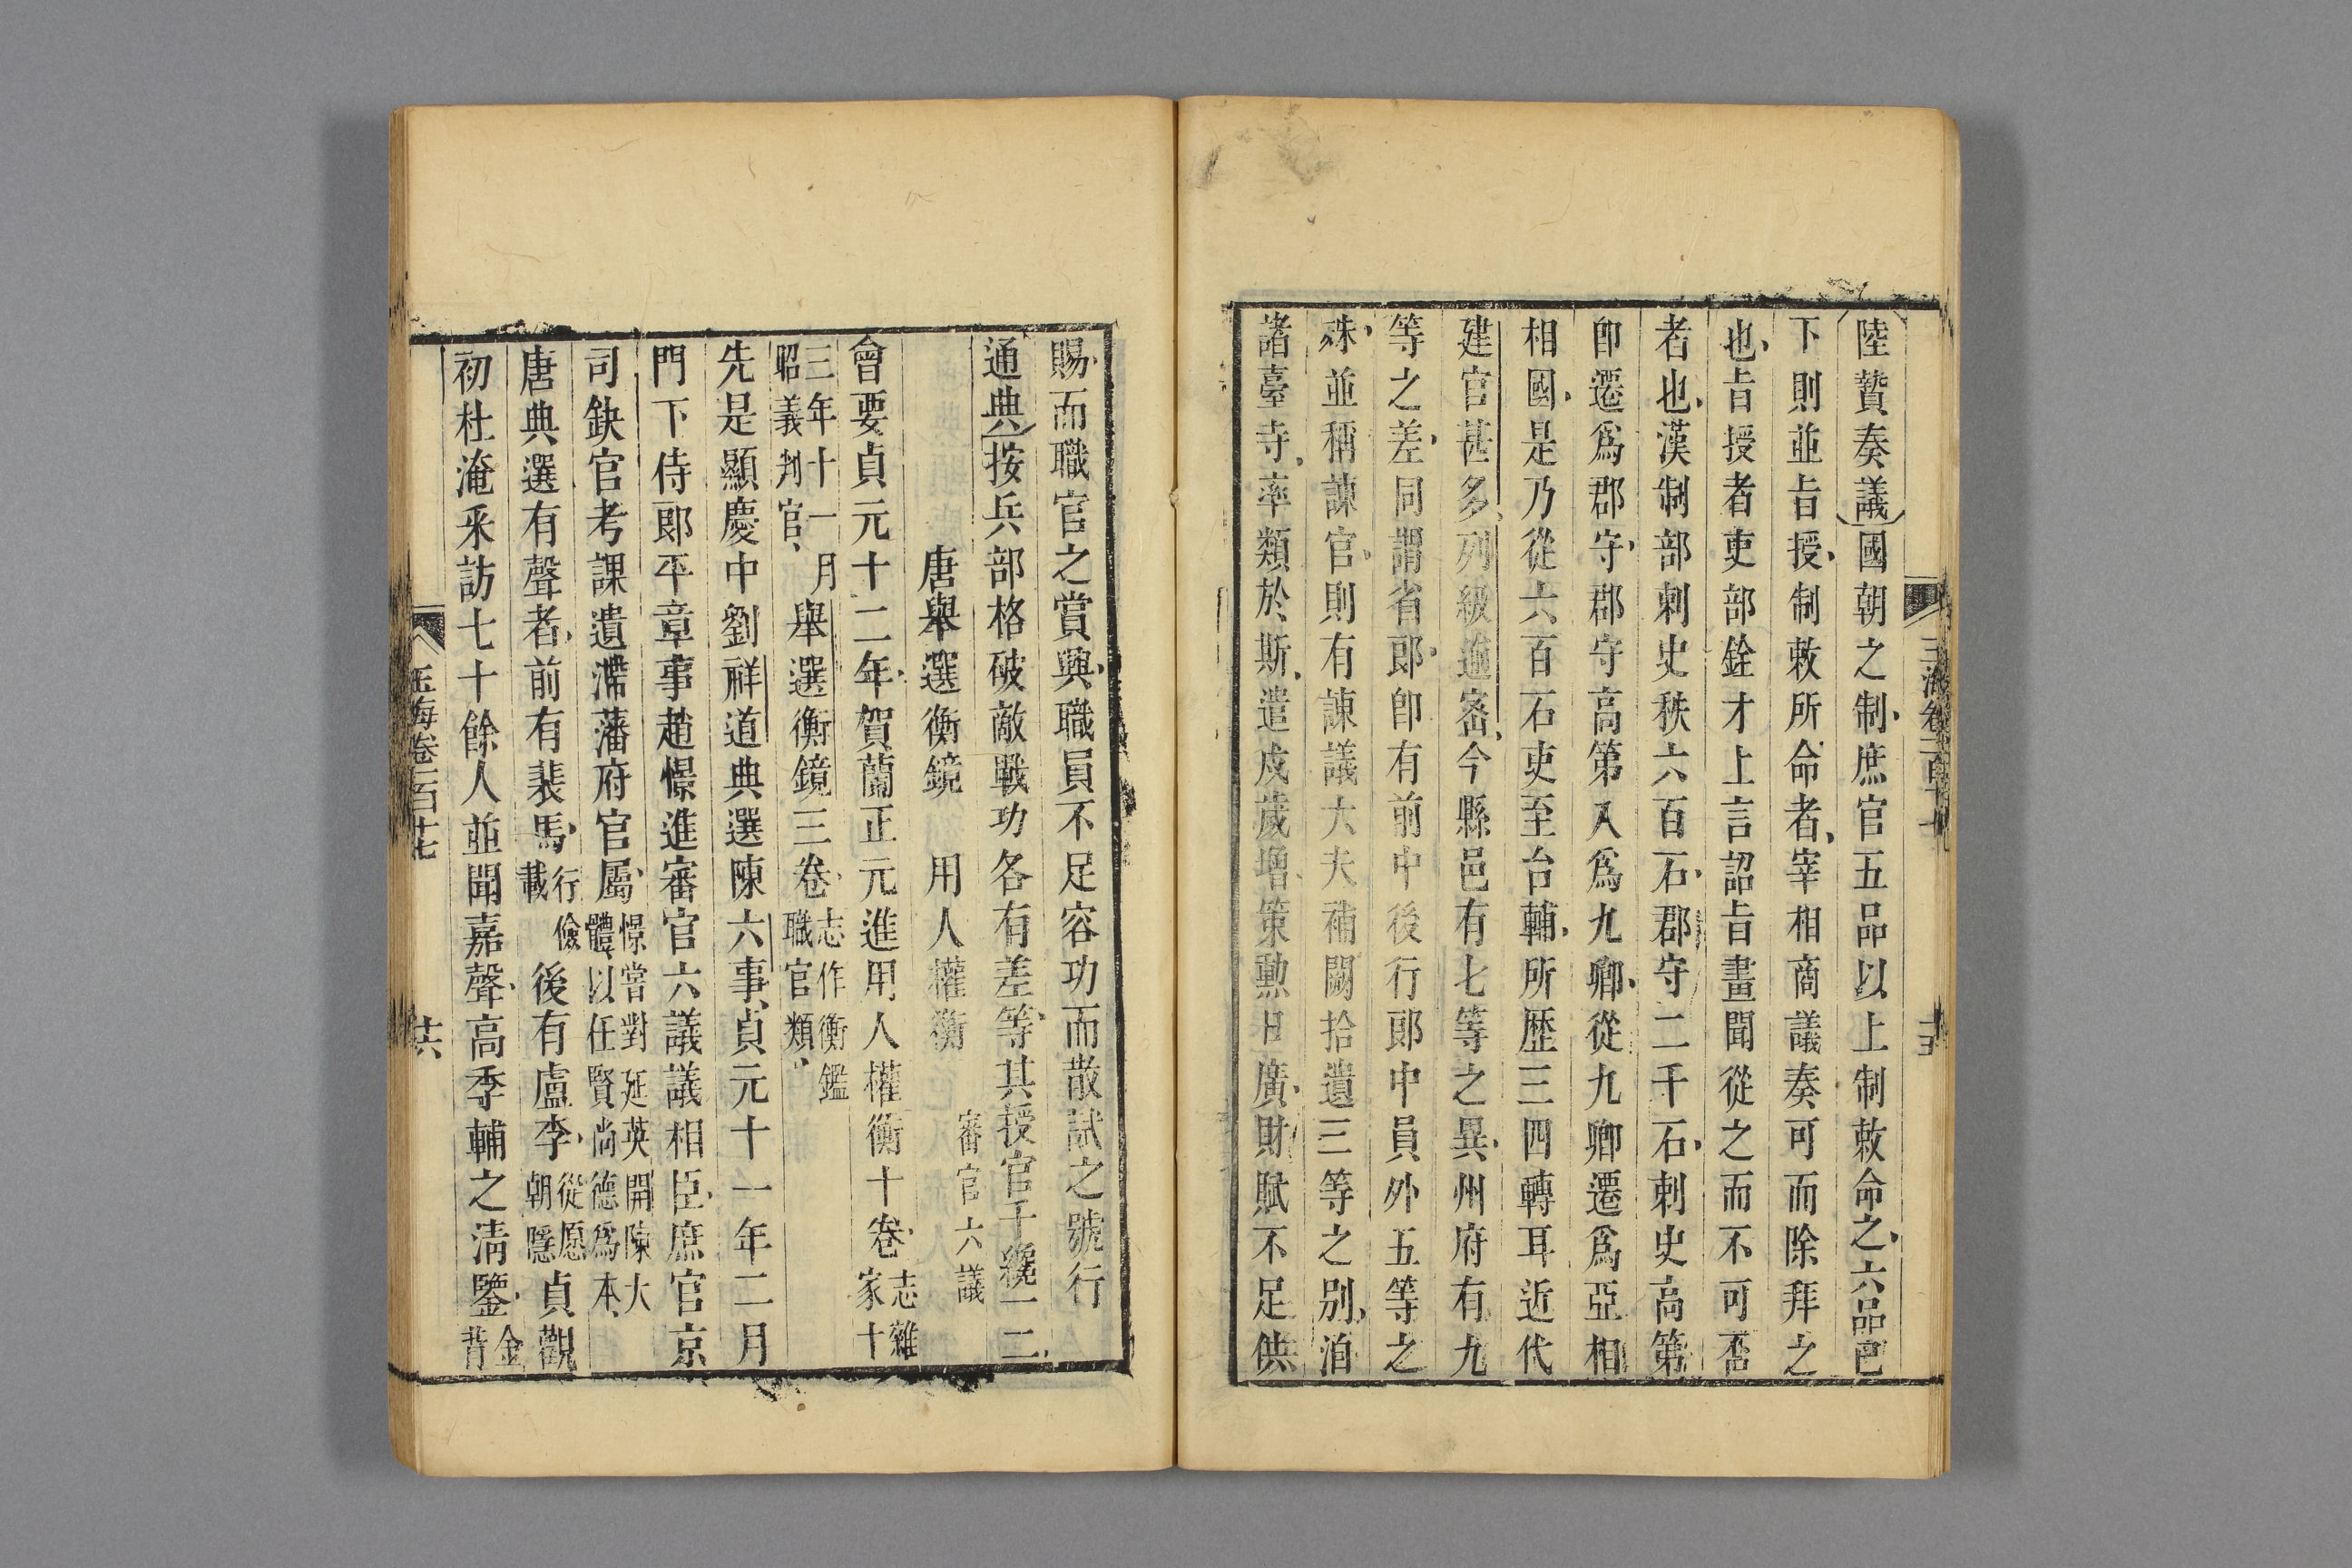 陸贄奏議國朝之制庶官五品以上制敕命之六品已
下則並旨授制敕所命者宰相商議奏可而除拜之
也旨授者吏部銓才上言詔旨畫聞從之而不可否
者也漢制部刺史秩六百石郡守二千石刺史高第
卽遷爲郡守郡守高第入爲九卿從九卿遷爲亞相
相國是乃從六百石吏至台輔所歷三四轉耳近代
建官甚多列級逾密今縣邑有七等之異州府有九
等之差同謂省郞卽有前中後行郞中員外五等之
殊並稱諫官則有諫議大夫補闕拾遺三等之別洎
諸臺寺率類於斯遣戍歲增策勳日廣財賦不足供
賜而職官之賞興職員不足容功而散試之號行
通典按兵部格破敵戰功各有差等其授官千纔一二
唐舉選衡鏡 用人權衡 審官六議
會要貞元十二年賀蘭正元進用人權衡十卷志雜家十
三年十一月昭義判官舉選衡鏡三卷志作衡鑑職官類
先是顯慶中劉祥道典選陳六事貞元十一年二月
門下侍郞平章事趙憬進審官六議議相臣庶官京
司鈌官考課遺滯藩府官屬憬嘗對延英開陳大體以任賢尚德爲本
唐典選有聲者前有裴馬行儉載後有盧李從愿朝隱貞觀
初杜淹釆訪七十餘人並聞嘉聲高季輔之淸鑒金背
玉海卷一百十七
十六